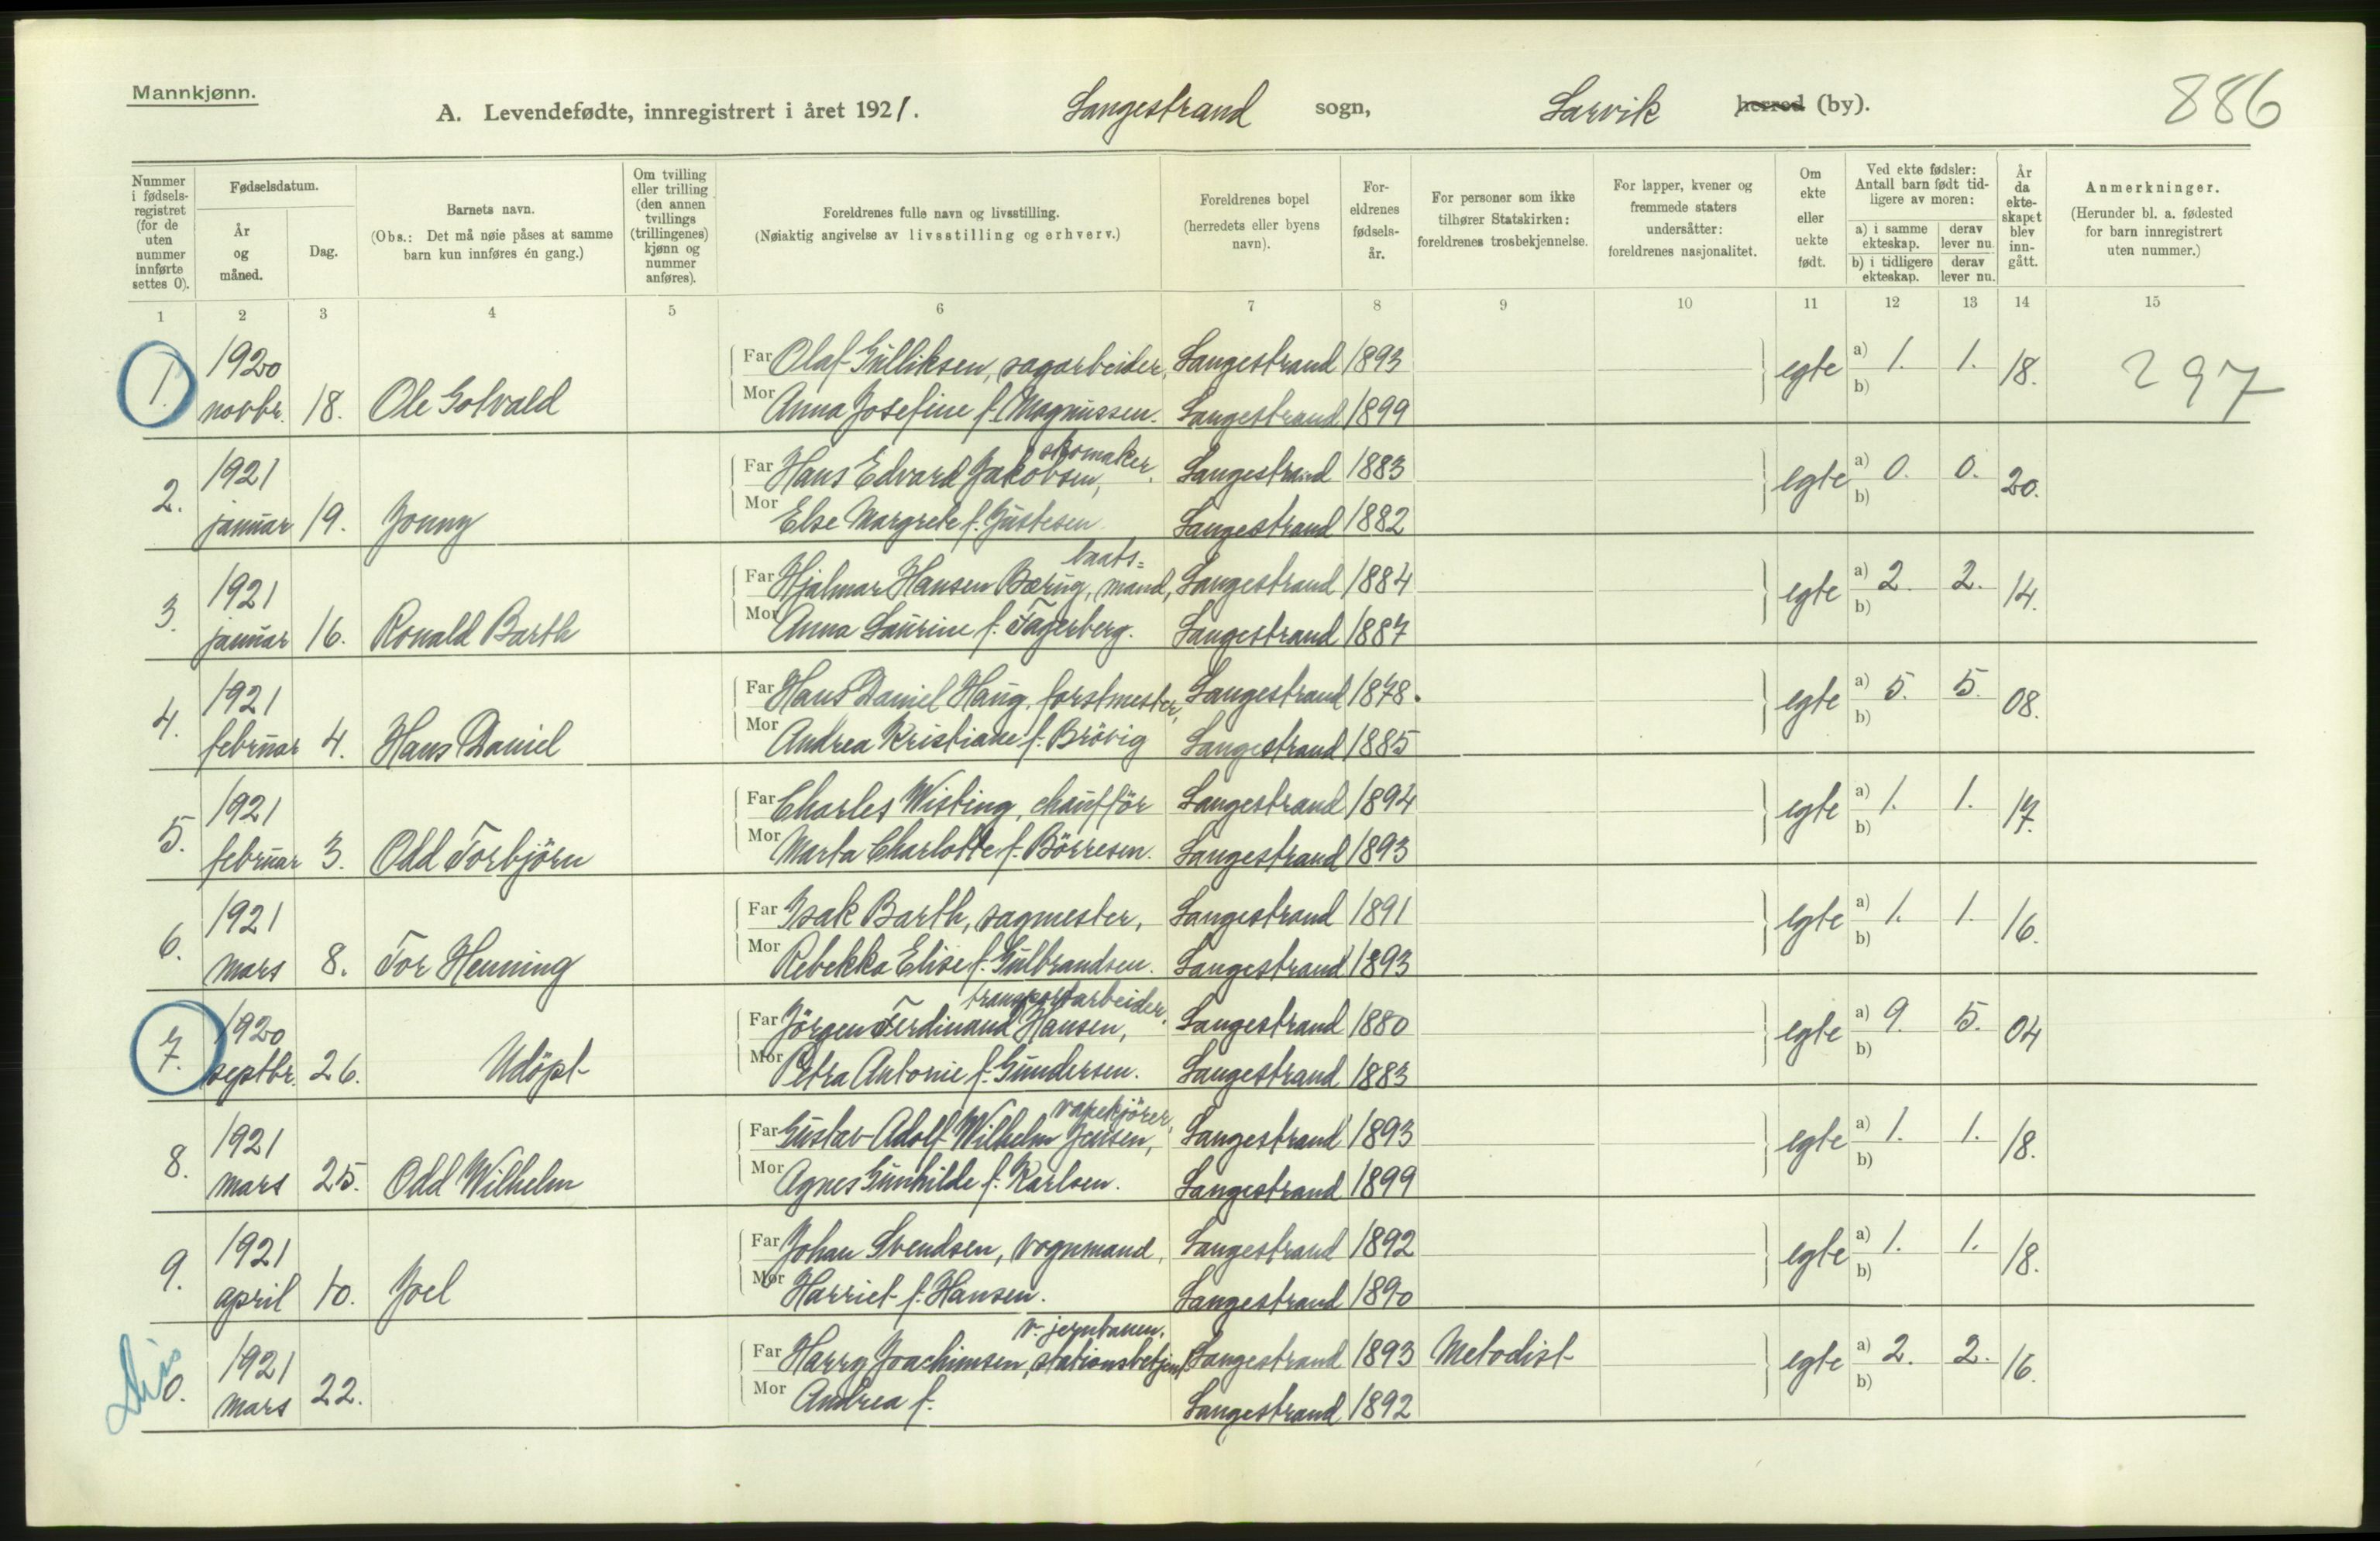 Mannkjønn.
A. Levendefødte, innregistrert i året 1921. Langestrand sogn, Larvik herred (by). 886
Nummer i fødselsregistret (for de uten nummer innførte settes 0).
Fødselsdatum.
År og måned.
Dag.
Barnets navn.
(Obs.: Det må nøie påses at samme barn kun innføres én gang.)
Om tvilling eller trilling (den annen tvillings (trillingenes) kjønn og nummer anføres).
Foreldrenes fulle navn og livsstilling.
(Nøiaktig angivelse av livsstilling og erhverv.)
Foreldrenes bopel (herredets eller byens navn).
Foreldrenes fødselsår.
For personer som ikke tilhører Statskirken: foreldrenes trosbekjennelse.
For lapper, kvener og fremmede staters undersåtter: foreldrenes nasjonalitet.
Om ekte eller uekte født.
Ved ekte fødsler: Antall barn født tidligere av moren:
a) i samme ekteskap. derav lever nu.
b) i tidligere ekteskap. derav lever nu.
År da ekteskapet blev inngått.
Anmerkninger.
(Herunder bl. a. fødested for barn innregistrert uten nummer.)
1 2 3 4 5 6 7 8 9 10 11 12 13 14 15
1. 1920 novbr. 18. Ole Gotvald Far Olaf Gulliksen, sagarbeider, Langestrand 1893 egte a) 1. 1. b) 18. 297
Mor Anna Josefine f. Magnussen. Langestrand 1899
2. 1921 januar 19. Jonny Far Hans Edvard Jakobsen, skomaker. Langestrand 1883 egte a) 0. 0. b) 20.
Mor Else Margrete f. Justesen Langestrand 1882
3. 1921 januar 16. Ronald Barth Far Hjalmar Hansen Bærug, baats=mand, Langestrand 1884 egte a) 2. 2. b) 14.
Mor Anna Laurine f. Fagerberg. Langestrand 1887
4. 1921 februar 4. Hans Daniel Far Hans Daniel Haug, forstmester, Langestrand 1878. egte a) 5. 5. b) 08.
Mor Andrea Kristiane f. Brövig Langestrand 1885
5. 1921 februar 3. Odd Torbjörn Far Charles Wisting, chaufför Langestrand 1894 egte a) 1. 1. b) 17.
Mor Marta Charlotte f. Börresen. Langestrand 1893
6. 1921 mars 8. Tor Henning Far Isak Barth, sagmester, Langestrand 1891 egte a) 1. 1. b) 16.
Mor Rebekka Elise f. Gulbrandsen. Langestrand 1893
7. 1920 septbr. 26. Udöpt Far Jörgen Ferdinand Hansen, transportarbeider. Langestrand 1880 egte a) 9. 5. b) 04
Mor Petra Antonie f. Gundersen. Langestrand 1883
8. 1921 mars 25. Odd Wilhelm Far Gustav Adolf Wilhelm Jensen, Langestrand 1893 egte a) 1. 1. b) 18.
Mor Agnes Gunhilde f. Karlsen. Langestrand 1899
9. 1921 april 10. Joel Far Johan Svendsen, vognmand, Langestrand 1892 egte a) 1. 1. b) 18.
Mor Harriet f. Hansen. Langestrand 1890
0. 1921 mars 22. Far Harry Joachimsen, stationsbetjent v. jernbanen. Langestrand 1893 Metodist egte a) 2. 2. b) 16.
Mor Andrea f. Langestrand 1892